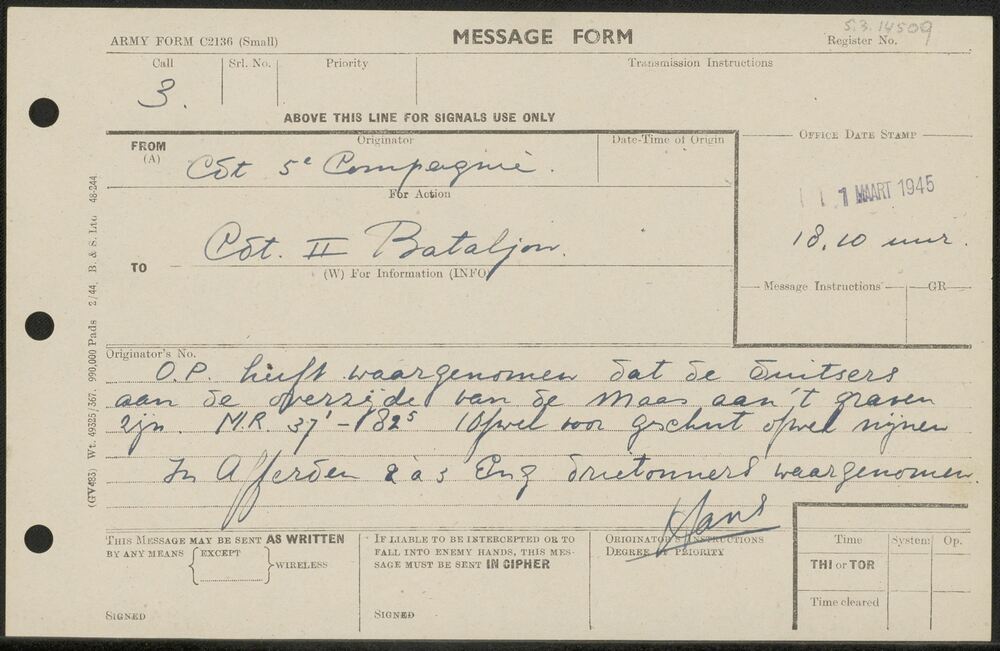 S.3.14509
ARMY FORM C2136 (Small)
MESSAGE FORM
Register No.
Call
Srl. No.
Priority
Transmission Instructions
3.
ABOVE THIS LINE FOR SIGNALS USE ONLY
FROM
(A)
Originator
Date-Time of Origin
OFFICE DATE STAMP
Cdt 5e Compagnie.
1 MAART 1945
For Action
Cdt. II Bataljon.
18,10 uur.
TO
(W) For Information (INFO)
Message Instructions
GR
(GV483) Wt. 49325/367. 990,000 Pads 2/44. B. & S. Ltd 48-244.
Originator's No.
O.P. heeft waargenomen dat de duitsers
aan de overzijde van de Maas aan't graven
zijn. M.R. 37' - 1825 (Ofwel voor geschut ofwel mijnen
In Afferden 2 à 3 Eng drietonners waargenomen.
THIS MESSAGE MAY BE SENT AS WRITTEN
BY ANY MEANS
EXCEPT
WIRELESS
SIGNED
IF LIABLE TO BE INTERCEPTED OR TO
FALL INTO ENEMY HANDS, THIS MES-
SAGE MUST BE SENT IN CIPHER
SIGNED
ORIGINATOR'S INSTRUCTIONS
DEGREE OF PRIORITY
Time
System
Op.
THI or TOR
Time cleared